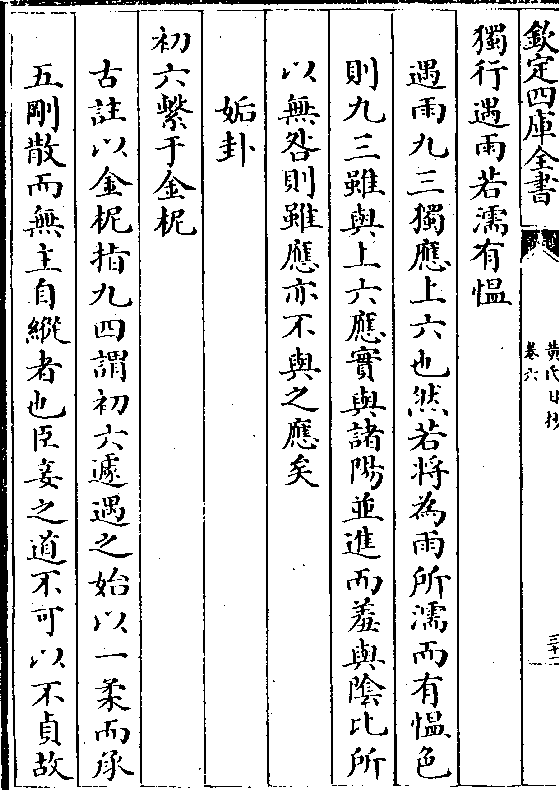 欽定四庫全書
黄氏日抄
卷六
三十一
獨行遇雨若濡有愠
遇雨九三獨應上六也然若將為雨所濡而有愠色
則九三雖與上六應實與諸陽並進而羞與陰比所
以無咎則雖應亦不與之應矣
姤卦
初六繫于金柅
古註以金柅指九四謂初六遽遇之始以一柔而承
五剛散而無主自縱者也臣妾之道不可以不貞故